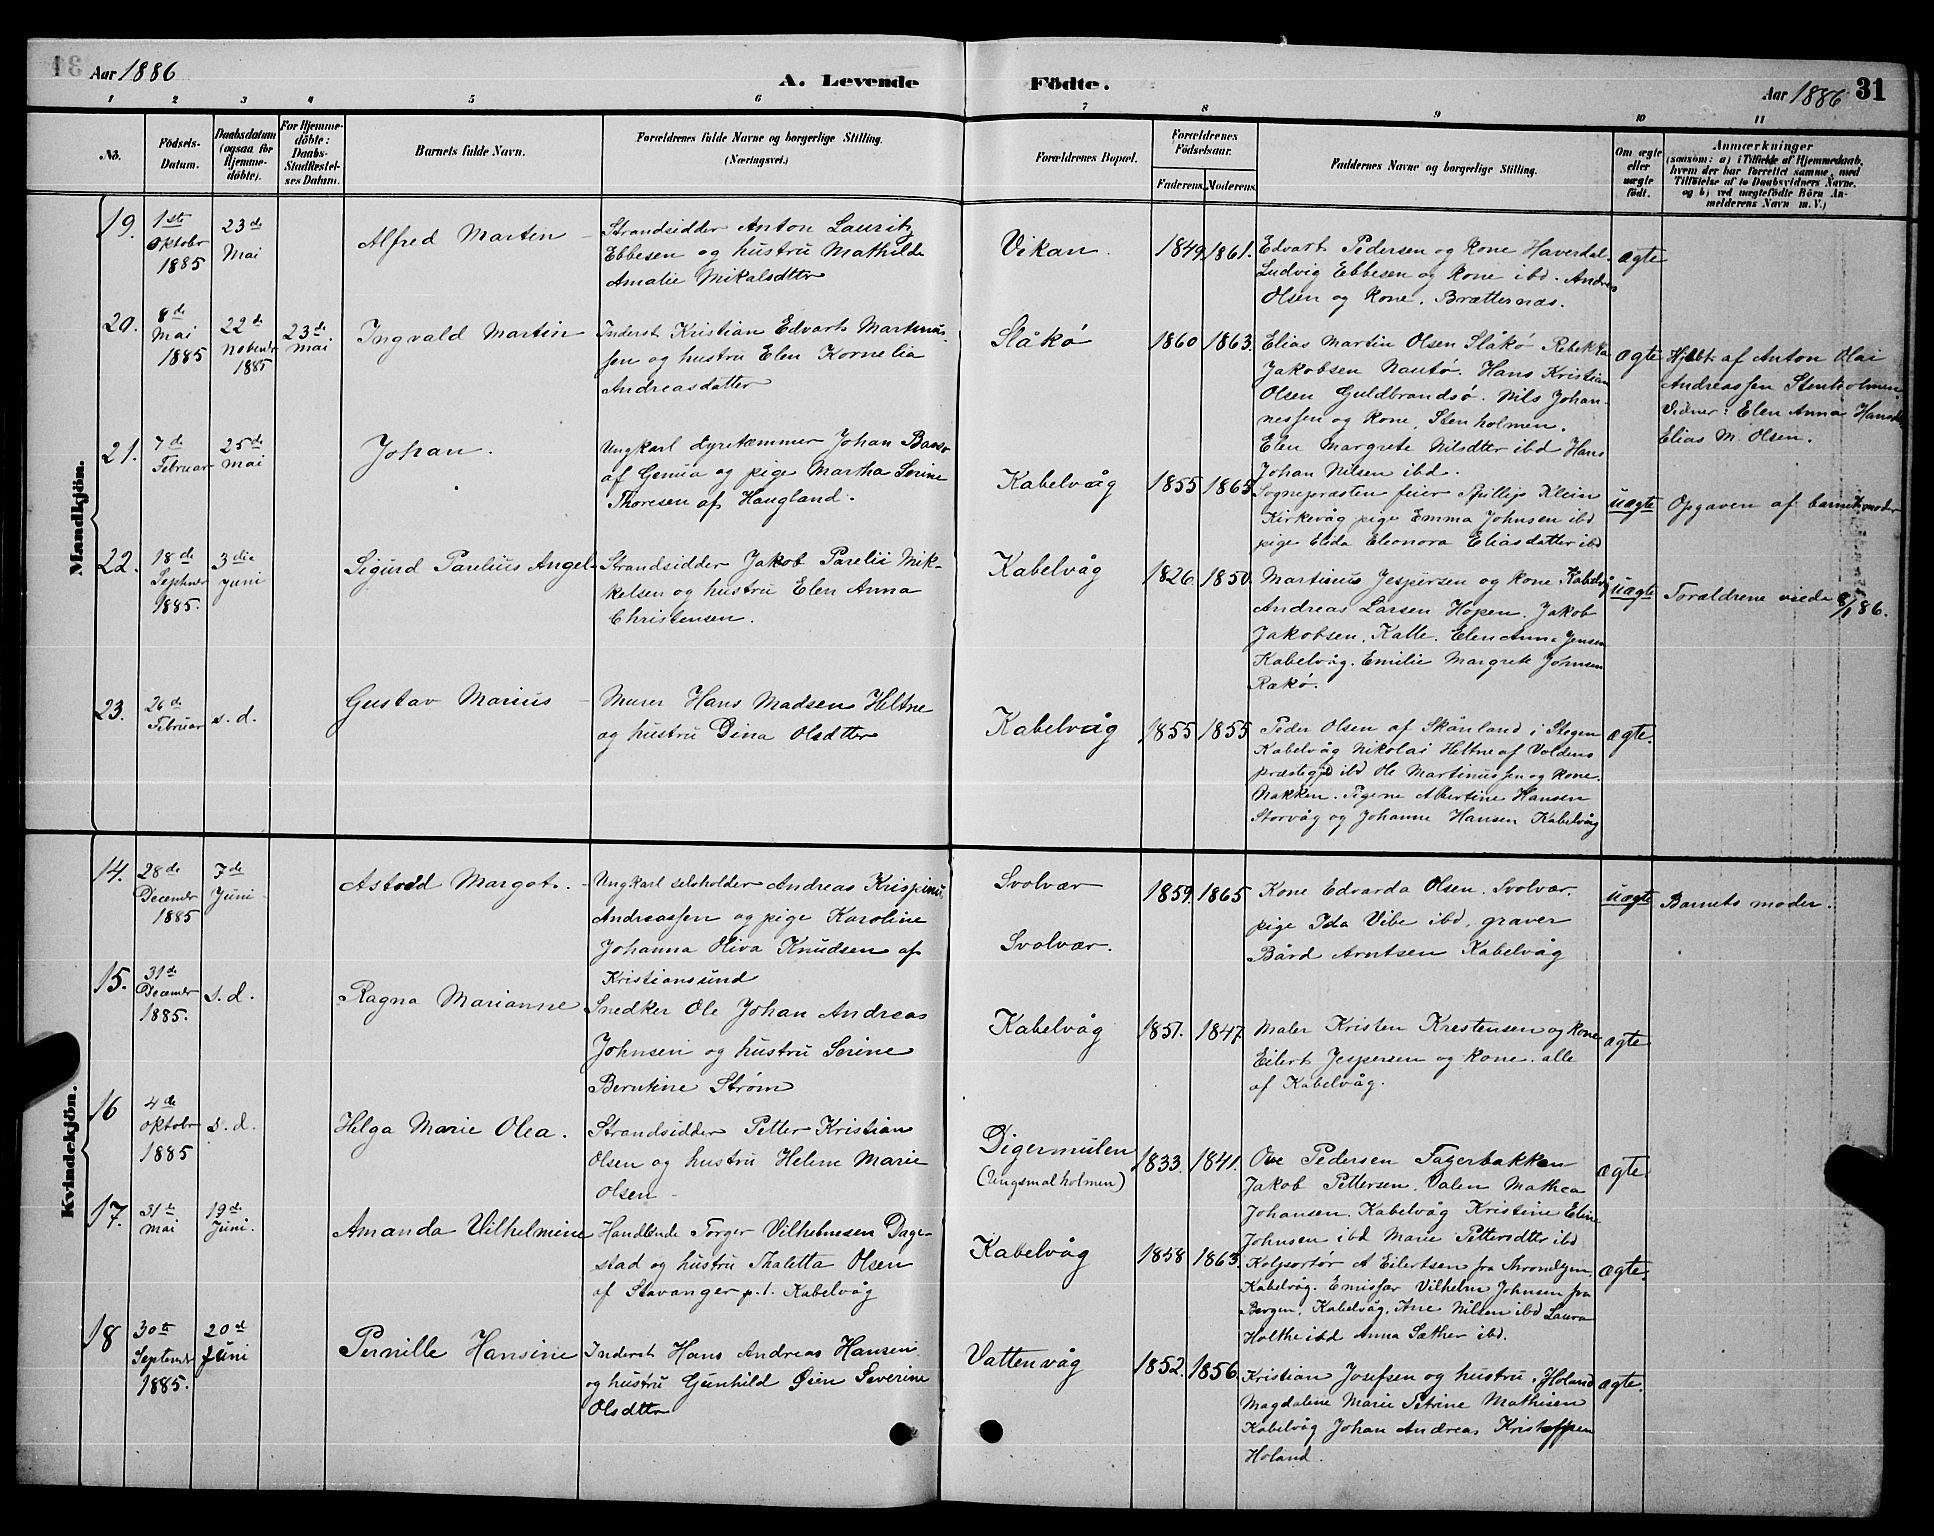 Aar 1886 A. Levende Födte. Aar 1886 31
1 2 3 4 5 6 7 8 9 10 11
No. Födsels-Datum. Daabsdatum (ogsaa for Hjemme-döbte). For Hjemme-döbte: Daabs-Stadfæstel-ses Datum. Barnets fulde Navn. Forældrenes fulde Navne og borgerlige Stilling. (Næringsvei.) Forældrenes Bopæl. Forældrenes Födselsaar. Faderens. Moderens. Faddernes Navne og borgerlige Stilling. Om ægte eller uægte födt. Anmærkninger (saasom: a) i Tilfælde af Hjemmedaab, hvem der har forrettet samme, med Tilföielse af to Daabsvidners Navne, og b) ved uægtefödte Börn An-melderens Navn m. V.)
Mandkjön.
19. 1ste Oktobr 1885 23de Mai
Alfred Martin
Strandsidder Anton Lauritz
Ebbesen og hustru Mathilde
Amalie Mikalsdtter
Vikan. 1849. 1861.
Edvart Pedersen og kone Haverdal.
Ludvig Ebbesen og kone ibd. Andreas
Olsen og kone. Brætternæs.
ægte
20. 8de Mai 1885 22de Nobembr 1885 23de Mai
Ingvald Martin
Inderst Kristian Edvart Martinus-
sen og hustru Elen Kornelia
Andreasdatter
Slåkø 1860 1863.
Elias Martin Olsen Slåkø Rebekka
Jakobsen Nautø. Hans Kristian
Olsen Guldbrandsø. Nils Johan-
nessen og kone, Stenholmen.
Elen Margrete Nilsdtter ibd Hans
Johan Nilsen ibd.
ægte
Hjdbt af Anton Olai
Andreassen Stenholmen
Vidner: Elen Anna
Elias M. Olsen.
21. 7de Februar 25de Mai
Johan.
Ungkarl dyretæmmer Johan
af Genua og pige Martha Serine
Thoresen af Haugland.
Kabelvåg 1855 1865
Sognepræsten feier Klein
Kirkevåg pige Emma Johnsen ibd
pige Elida Eleonora Eliasdatter ibd
uægte
Opgaven af barnets moder
22. 18de Septmbr 1885. 3die Juni
Sigurd Parelius Angel
Strandsidder Jakob Parelii Mik-
kelsen og hustru Elen Anna
Christensen.
Kabelvåg 1826. 1850.
Martinus Jespersen og kone Kabelvåg
Andreas Larsen Hopen. Jakob
Jakobsen, Kalle. Elen Anna Jensen
Kabelvåg. Emilie Margrete Johnsen
Rækø.
uægte
Forældrene viede 86.
23. 26de Februar s.d.
Gustav Marius
Murer Hans Madsen Heltne
og hustru Dina Olsdtter
Kabelvåg 1855 1855
Peder Olsen af Skånland i Stegen
Kabelvåg Nikolai Heltne af Voldens
præstegjd ibd Ole Martinussen og kone.
Nakken. Pigerne Albertine Hansen
Storvåg og Johanne Hansen Kabelvåg
ægte.
Kvindekjön.
14. 28de Decembr 1885 7de Juni
Margot.
Ungkarl seloholder Andreas Krispinus
Andreassen og pige Karoline
Johanna Oliva Knudsen af
Kristiansund
Svolvær
Svolvær. 1859. 1865
Kone Edvarda Olsen. Svolvær.
pige Ida Vibe ibd, graver
Bård Arntsen Kabelvåg
uægte
Barnets moder.
15. 31de Decembr 1885. s.d.
Ragna Marianne
Snedker Ole Johan Andreas
Johnsen og hustru Serine
Berntine Strøm
Kabelvåg 1851. 1847.
Maler Kristen Krestensen og kone
Eilert Jespersen og kone. alle
af Kabelvåg.
ægte
16 4de Oktobr 1885 s.d.
Helga Marie Olea.
Strandsidder Petter Kristian
Olsen og hustru Helene Marie
Olsen
Digermulen
(Ungsmalholmen) 1833. 1841.
Ove Pedersen Fagerbakken
Jakob Pettersen. Valen Mathea
Johansen. Kabelvåg Kristine Eline
Johnsen ibd Marie Pettersdtter ibd
ægte
17. 31te Mai 19de Juni.
Amanda Vilhelmine
Handlende Torger Vilhelmsen Dage-
stad og hustru Thaletta Olsen
af Stavanger p.t. Kabelvåg
Kabelvåg 1858 1863.
Kolportør A Eilertsen fra Throndhjem.
Kabelvåg. Emissær Vilhelm Johnsen fra
Bergen. Kabelvåg. Ane Nilsen ibd Laura
Holthe ibd Anna Sæther ibd.
ægte.
18 30te Septembr 1885. 20de Juni
Pernille Hansine
Inderst Hans Andreas Hansen
og hustru Gunhild Øien Severine
Olsdtter
Vattenvåg 1852. 1856.
Kristian Josefsen og hustru. Holand
Magdalene Marie Petrine Mathisen
Kabelvåg Johan Andreas Kristoffersen
Holand.
ægte.